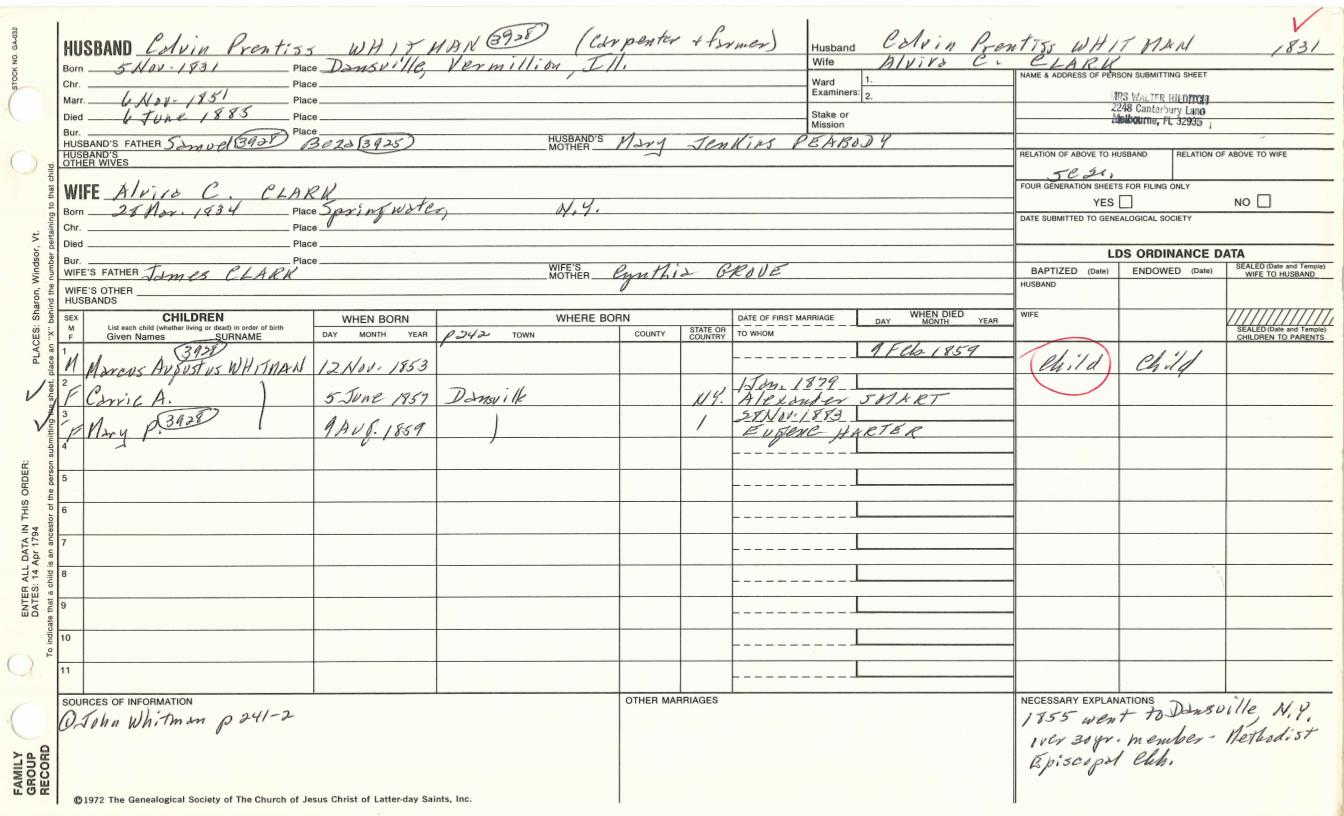 STOCK NO. GA-032
HUSBAND Colvin Prentiss WHITMAN 3928 (Carpenter + farmer)
Born 5 Nov. 1831 Place Dansville, Vermillion, Ill.
Chr. Place
Marr. 6 Nov. 1851 Place
Died 6 June 1885 Place
Bur. Place
HUSBAND'S FATHER Samuel 3928 Beza 3925 HUSBAND'S MOTHER Mary Jenkins PEABODY
HUSBAND'S OTHER WIVES
WIFE Alvira C. CLARK
Born 28 Mar. 1834 Place Springwater, N.Y.
Chr. Place
Died Place
Bur. Place
WIFE'S FATHER James CLARK WIFE'S MOTHER Cynthia GROVE
WIFE'S OTHER HUSBANDS
Husband Colvin Prentiss WHITMAN 1831
Wife Alvira C. CLARK
Ward Examiners: 1.
2.
Stake or Mission
NAME & ADDRESS OF PERSON SUBMITTING SHEET
MRS WALTER HILDITCH
2248 Canterbury Lane
Melbourne, FL 32935
RELATION OF ABOVE TO HUSBAND RELATION OF ABOVE TO WIFE
FOUR GENERATION SHEETS FOR FILING ONLY
YES NO
DATE SUBMITTED TO GENEALOGICAL SOCIETY
LDS ORDINANCE DATA
BAPTIZED (Date) ENDOWED (Date) SEALED (Date and Temple) WIFE TO HUSBAND
HUSBAND
WIFE
SEALED (Date and Temple) CHILDREN TO PARENTS
SEX M F
CHILDREN
List each child (whether living or dead) in order of birth
Given Names SURNAME
WHEN BORN
DAY MONTH YEAR
WHERE BORN
p242 TOWN COUNTY STATE OR COUNTRY
DATE OF FIRST MARRIAGE
TO WHOM
WHEN DIED
DAY MONTH YEAR
1 M Marcus Augustus WHITMAN 3928 12 Nov. 1853 9 Feb 1859 Child Child
2 F Carrie A. 5 June 1857 Dansville N.Y. 1 Jan. 1879 Alexander SMART
3 F Mary P. 3928 9 Aug. 1859 28 Nov. 1883 Eugene HARTER
4
5
6
7
8
9
10
11
SOURCES OF INFORMATION
① John Whitman p 241-2
OTHER MARRIAGES
NECESSARY EXPLANATIONS
1855 went to Dansville, N.Y.
over 30 yr. member - Methodist
Episcopal Chh.
©1972 The Genealogical Society of The Church of Jesus Christ of Latter-day Saints, Inc.
FAMILY GROUP RECORD
ENTER ALL DATA IN THIS ORDER:
DATES: 14 Apr 1794
PLACES: Sharon, Windsor, Vt.
To indicate that a child is an ancestor of the person submitting the sheet, place an "X" behind the number pertaining to that child.